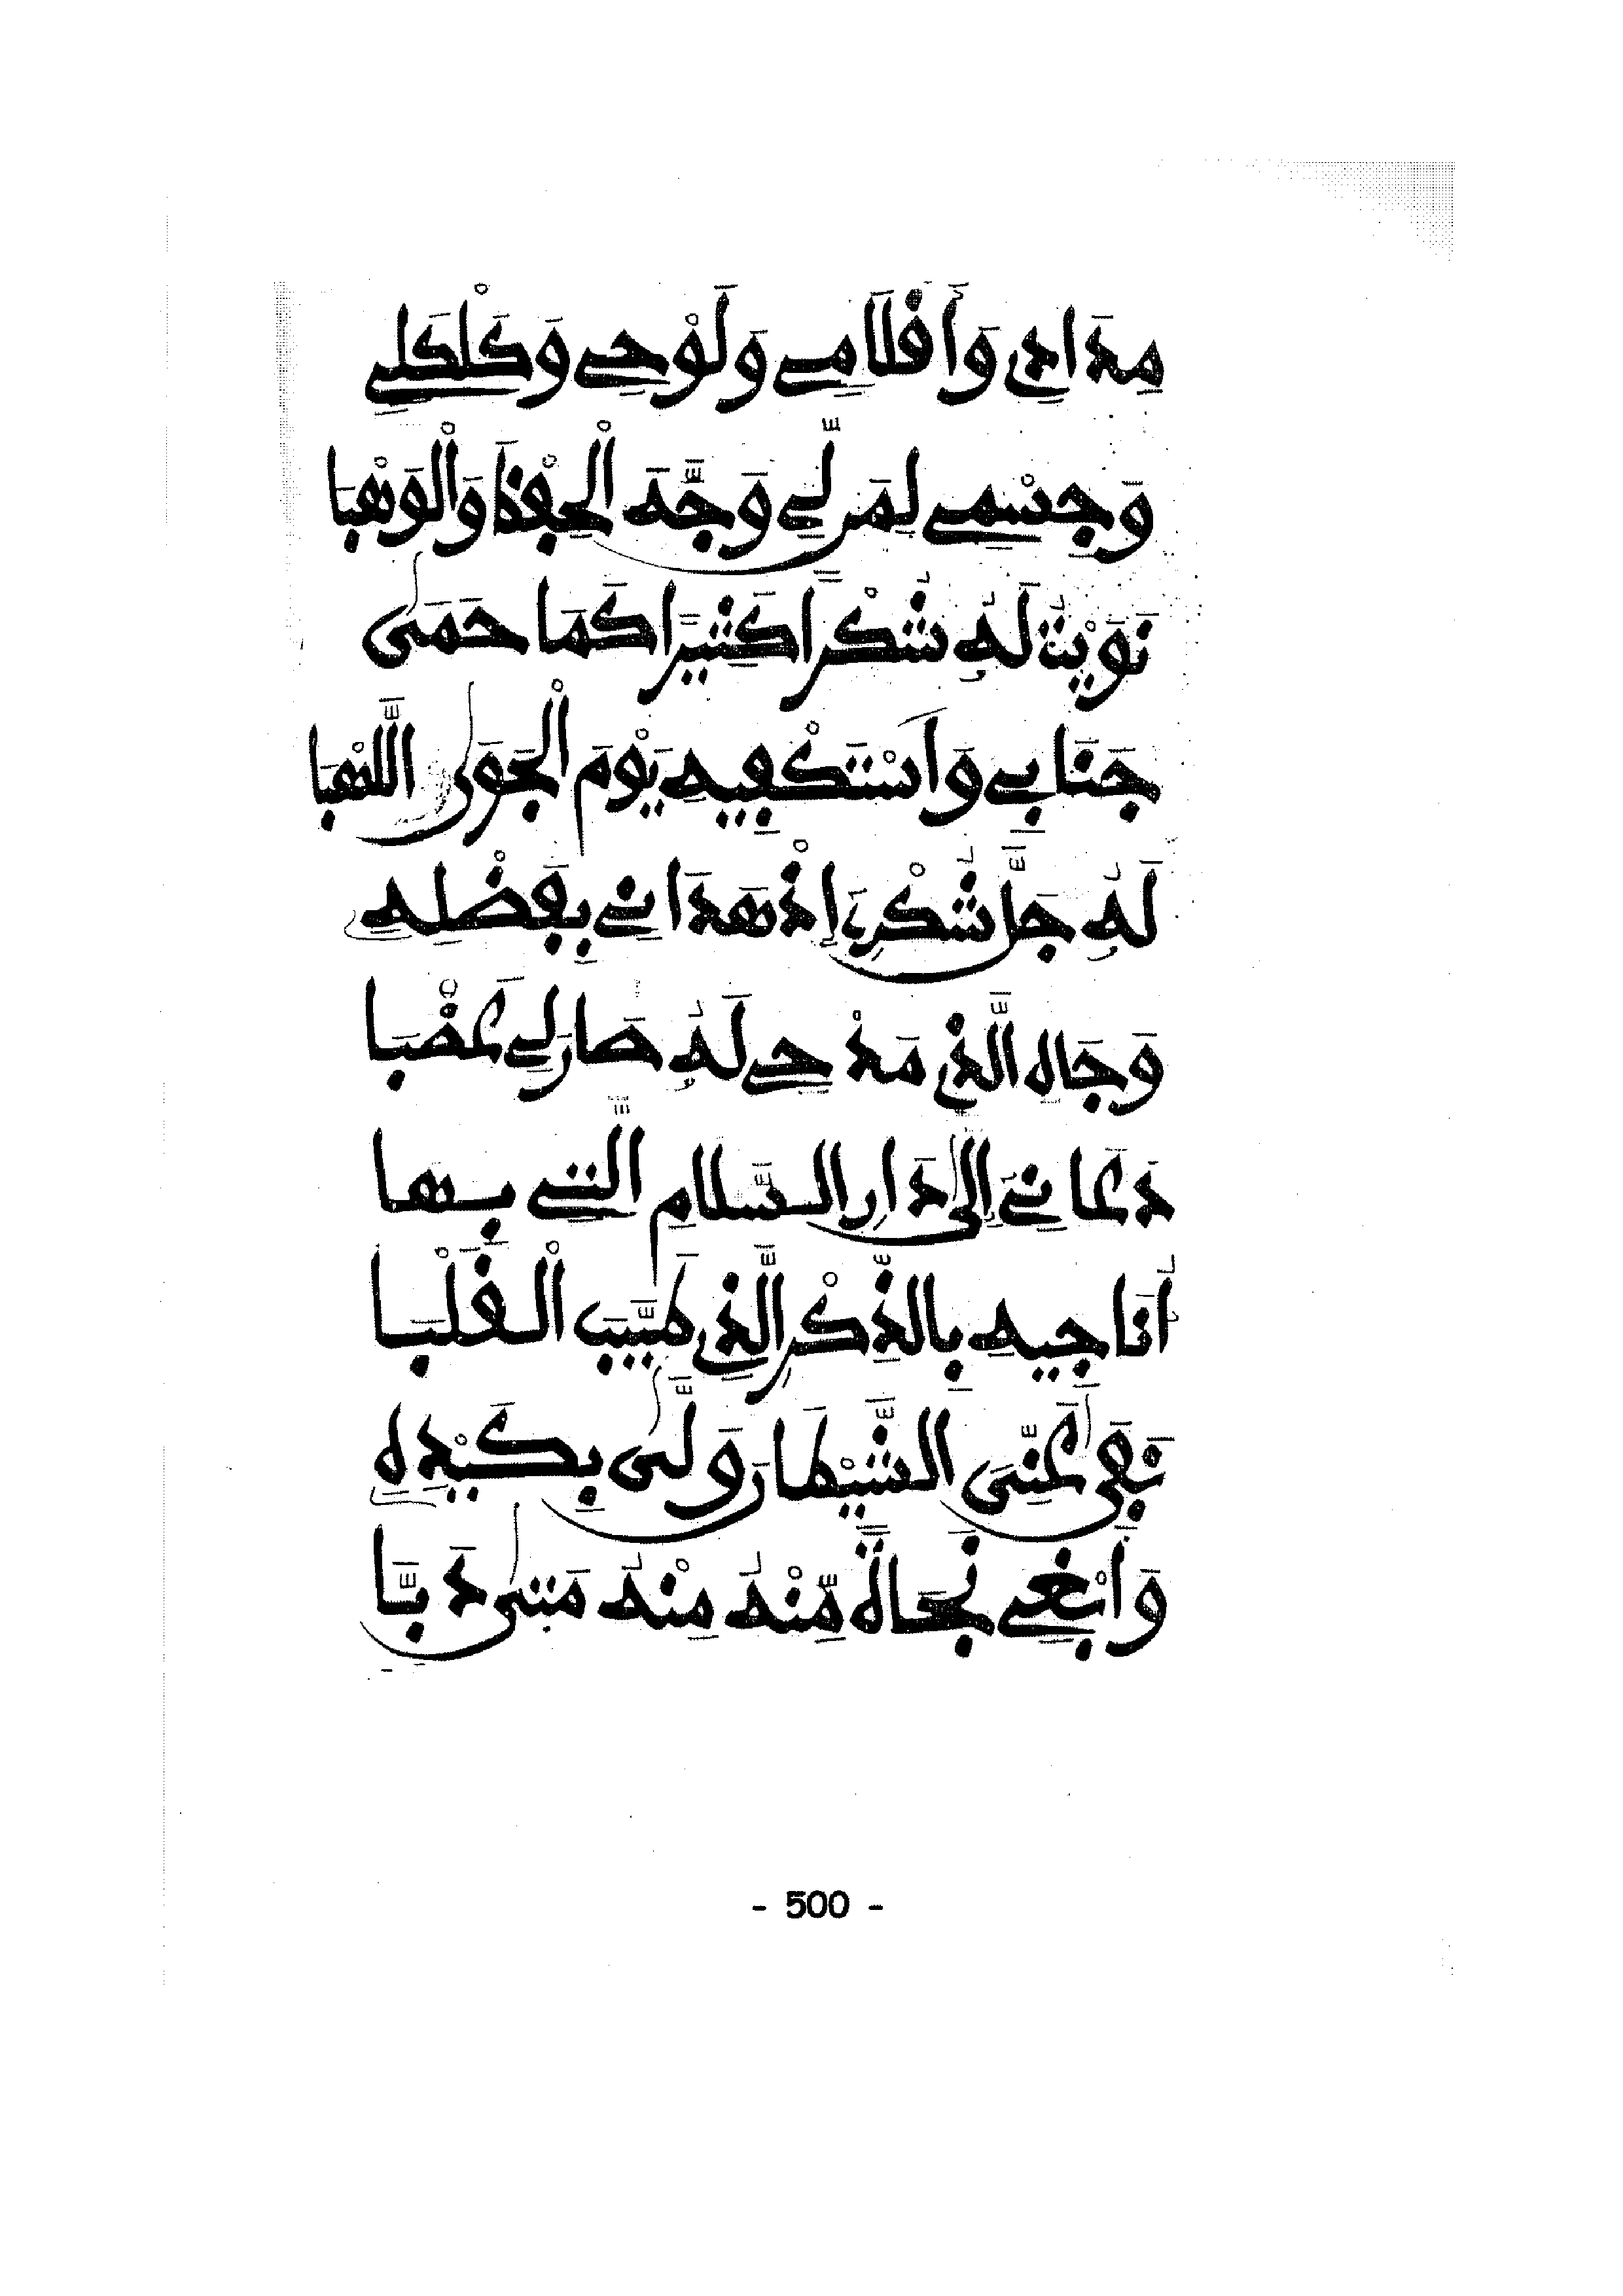 مِدَادِي وَأَقْلَامِي وَلَوْحِي وَكَلْكَلِي
وَجِسْمِي لِمَن لِّي وَجَّهَ الْحِفْظَ وَالْوَهْبَا
نَوَيْتُ لَهُ شُكْرًا كَثِيرًا كَمَا حَمَى
جَنَابِي وَأَسْتَكْفِيهِ يَوْمَ الْجَوَى اللَّهْبَا
لَهُ جَلَّ شُكْرِي إِذْ هَدَانِي بِفَضْلِهِ
وَجَاهِ الَّذِي مَدْحِي لَهُ صَارَ لِي عَضْبَا
دَعَانِي إِلَى دَارِ السَّلَامِ الَّتِي بِهَا
أُنَاجِيهِ بِالذِّكْرِ الَّذِي طَيَّبَ الْقَلْبَا
نَفَى عَنِّيَ الشَّيْطَانَ وَلَّى بِكَيْدِهِ
وَأَبْغِي نَجَاةً مِّنْهُ مِنْهُ مَتَى دَبَّا
- 500 -